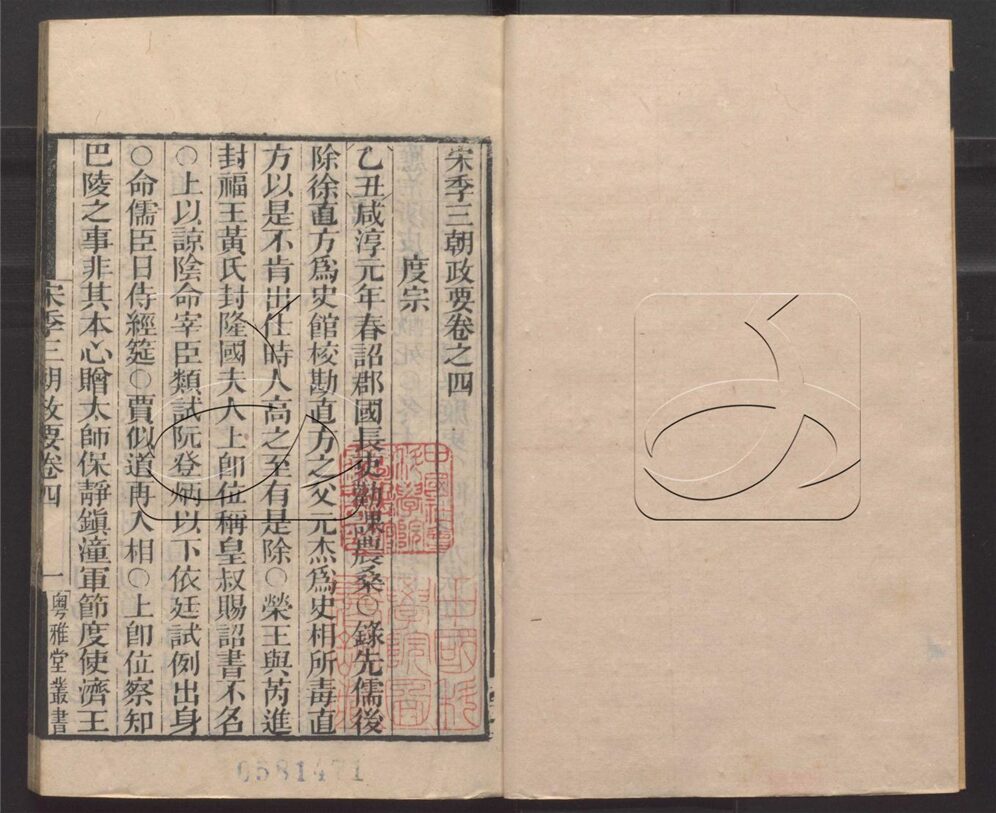 宋季三朝政要卷之四
度宗
乙丑咸淳元年春詔郡國長吏勸課農桑○錄先儒後
除徐直方爲史館校勘直方之父元杰爲史相所毒直
方以是不肯出仕時人高之至有是除○榮王與芮進
封福王黃氏封隆國夫人上卽位稱皇叔賜詔書不名
○上以諒陰命宰臣類試阮登炳以下依廷試例出身
○命儒臣日侍經筵○賈似道再入相○上卽位察知
巴陵之事非其本心贈太師保靜鎮潼軍節度使濟王
宋季三朝政要卷四
一
粵雅堂叢書
0581471